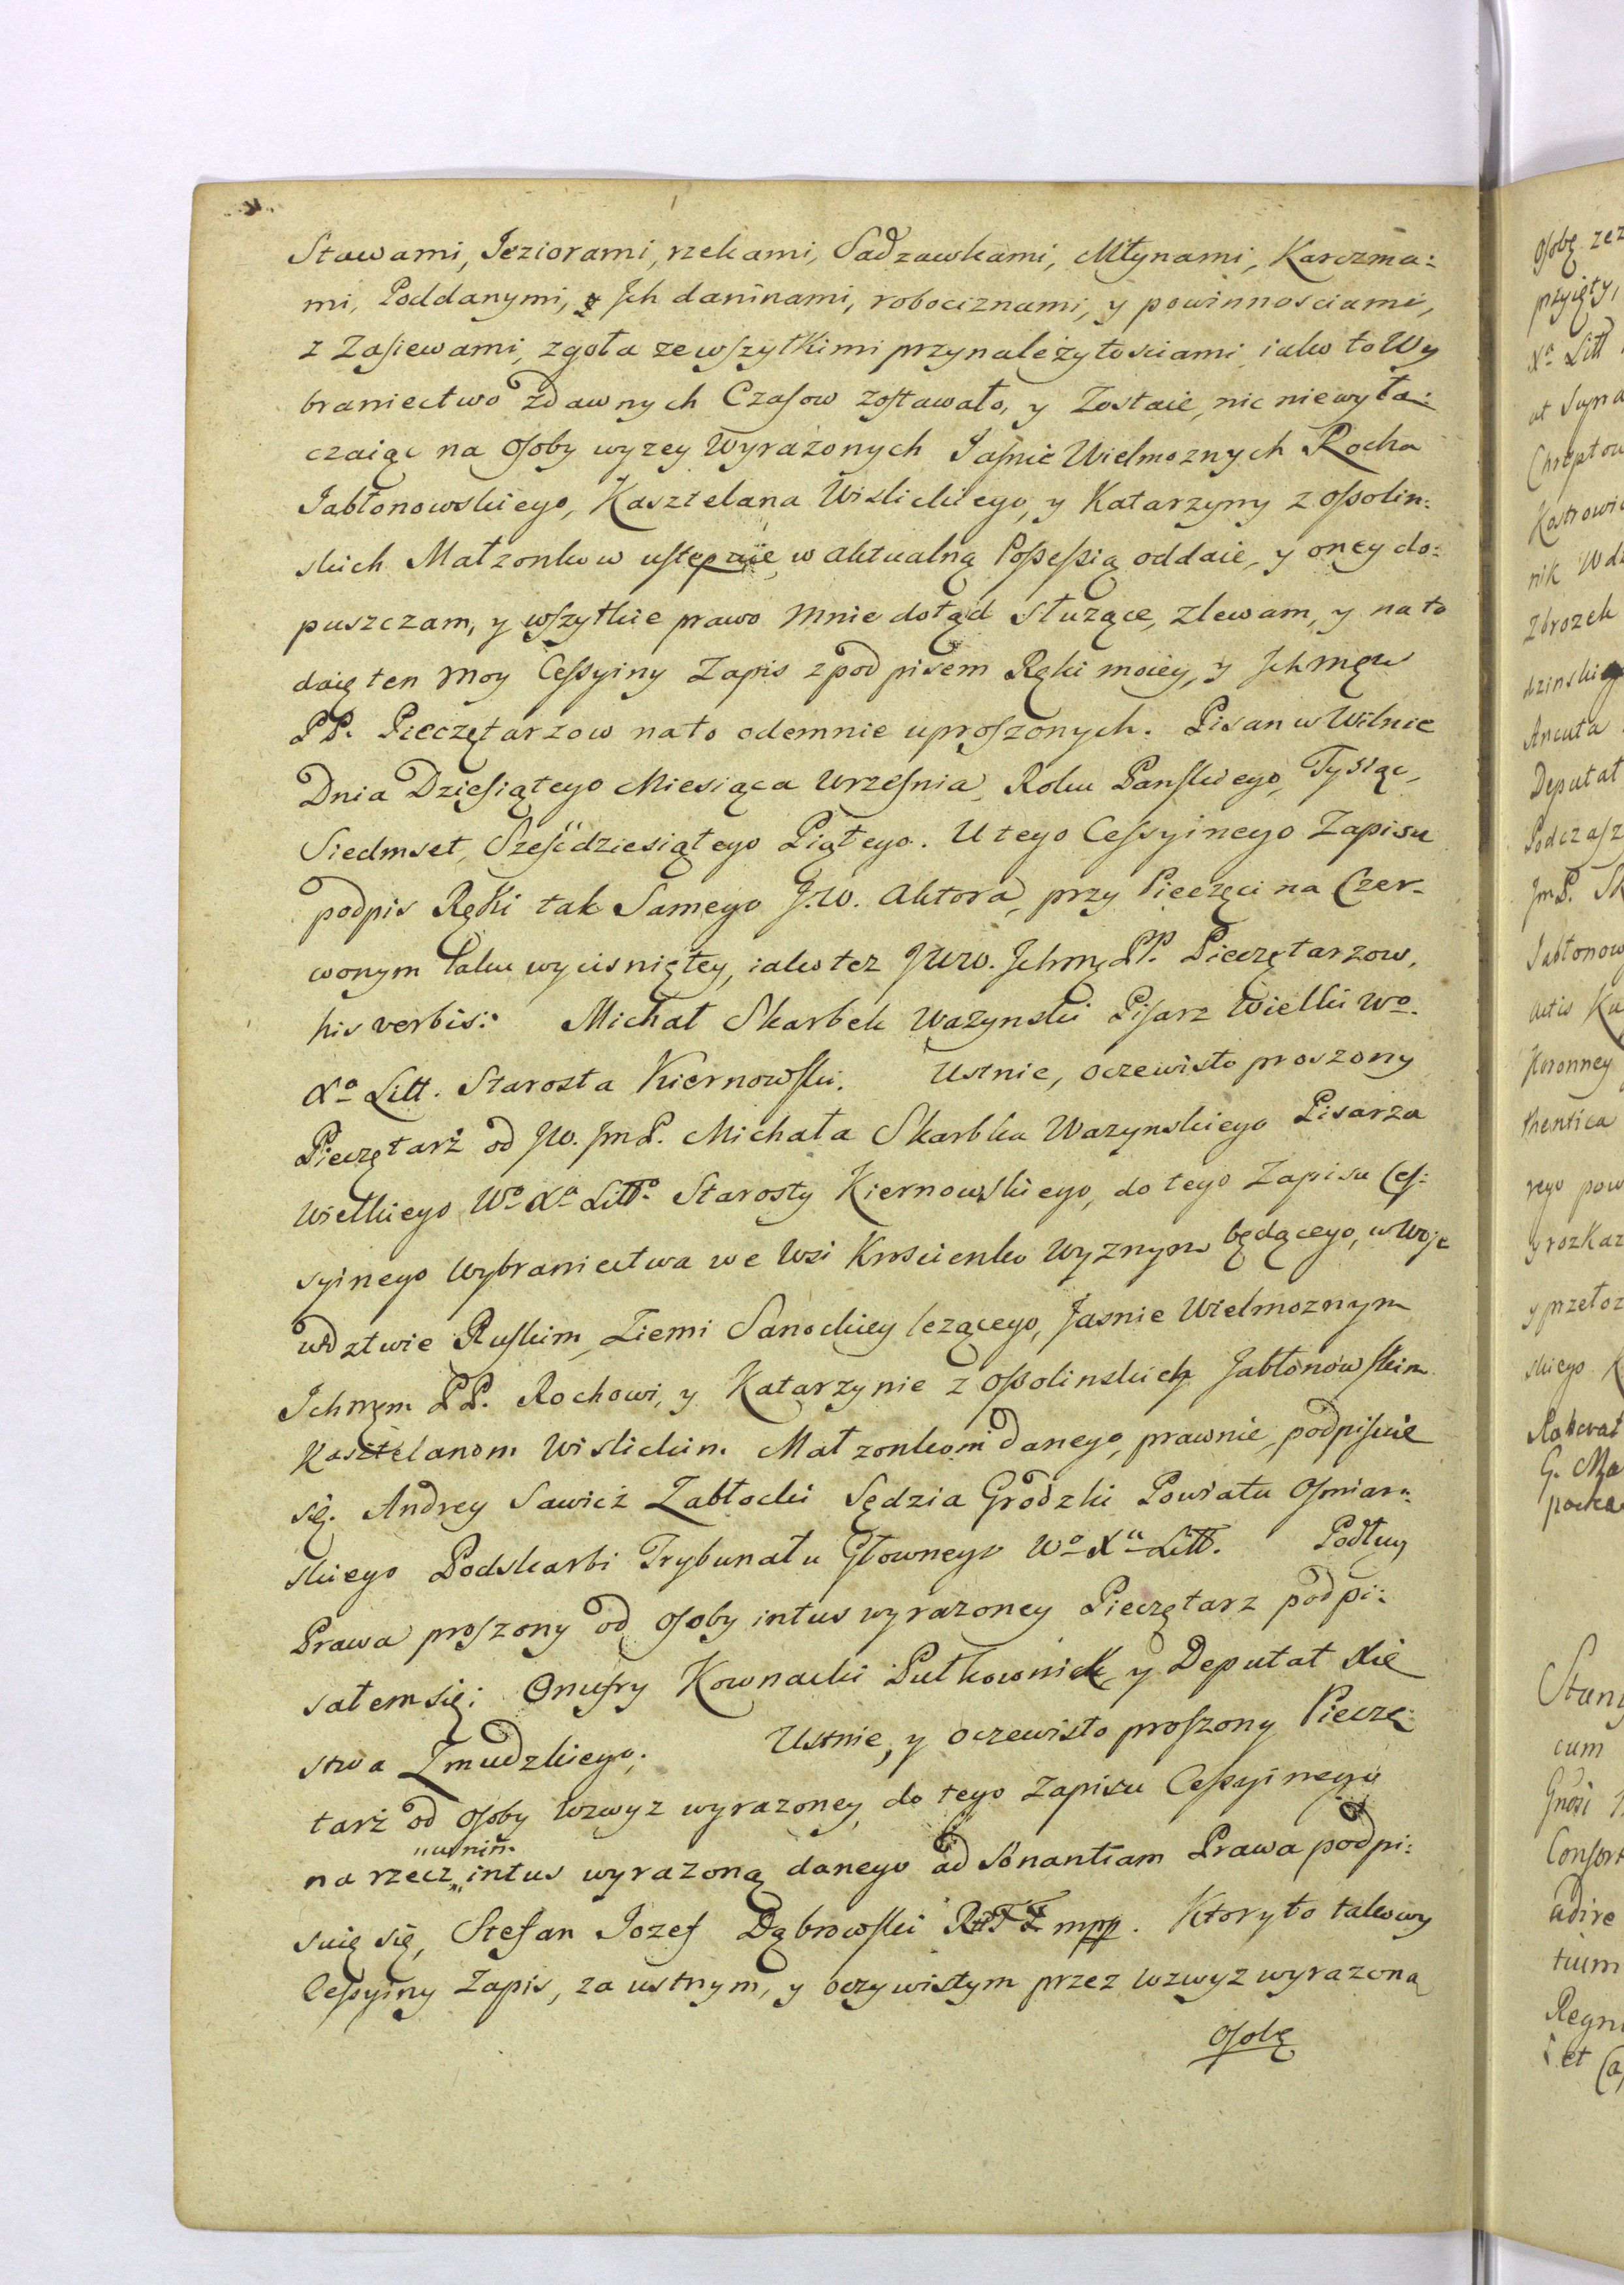 Stawami, Jeziorami, rzekami, Sadzawkami, Młynami, Karczma:
mi, Poddanymi, y Jch daninami, robociznami, y powinnosciami,
z Zasiewami, zgoła ze wszytkimi przynależytosciami iako to Wy
braniectwo zdawnych Czasow zostawało, y Zostaie, nic niewyła:
czaiąc na Osoby wyzey Wyrażonych Jasnie Wielmoznych Rocha
Jabłonowskiego, Kasztelana Wislickiego, y Katarzyny z Ossolin:
skich Małzonkow ustępuię, w aktualną Possessią oddaie, y oney do:
puszczam, y wszytkie prawo mnie dotąd słuzące, zlewam, y na to
daię ten moy Cessyiny Zapis z podpisem Ręki moiey, y Jchmęw
PP. Pieczętarzow na to odemnie uproszonych. Pisan w Wilnie
Dnia Dziesiątego Miesiąca Wrzesnia, Roku Panskiego, Tysiąc,
Siedmset, Szesćdziesiątego Piątego. U tego Cessyinego Zapisu
podpis Ręki tak Samego J.W. Aktora, przy Pieczęci na Czer-
wonym laku wycisniętey, iako tez JWW. Jchmę PP. Pieczętarzow,
his verbis: Michał Skarbek Wazynski Pisarz Wielki Wo.
Xa Litt. Starosta Kiernowski. Ustnie, oczewisto proszony
Pieczętarż od JW. JmP. Michała Skarbka Wazynskiego Pisarza
Wielkiego Wo Xa Litto Starosty Kiernowskiego, do tego Zapisu Ces:
syinego Wybraniectwa we Wsi Kroscienko Wyznym będącego, w Woje
wdztwie Ruskim, Ziemi Sanockiey lezącego, Jasnie Wielmoznym
Jchmęm PP. Rochowi, y Katarzynie z Ossolinskich Jabłonowskim
Kasztelanom Wislickim. Małzonkom danego, prawnie podpisuie
się. Andrey Sawicz Zabłocki Sędzia Grodzki Powiatu Osmian:
skiego Podskarbi Trybunału Głownego Wo Xa Litt. Podług
Prawa proszony od Osoby intus wyrazoney Pieczętarz podpi:
sałem się: Onufry Kownacki Pułkownik y Deputat Xię
stwa Zmudzkiego. Ustnie, y oczewisto proszony Pieczę:
tarż od Osoby wzwyz wyrazoney, do tego Zapisu Cessyinego
„w nin.
na rzecz „ intus wyrazoną danego ad Sonantiam Prawa podpi:
suię się, Stefan Jozef Dąbrowski mpp. Ktoryto takowy
Cessyiny Zapis, za ustnym, y oczywistym przez wzwyz wyrazoną
Osobę